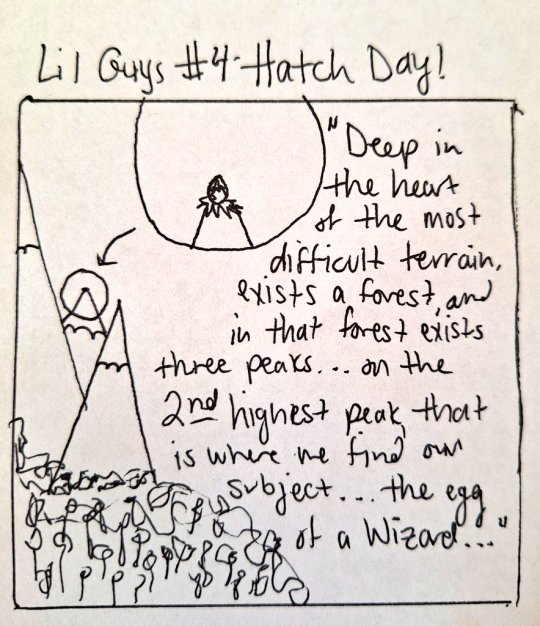 Lil Guys #4-Hatch Day!
"Deep in
the heart
of the most
difficult terrain,
exists a forest, and
in that forest exists
three peaks... on the
2nd highest peak, that
is where we find our
subject... the egg
of a Wizard..."